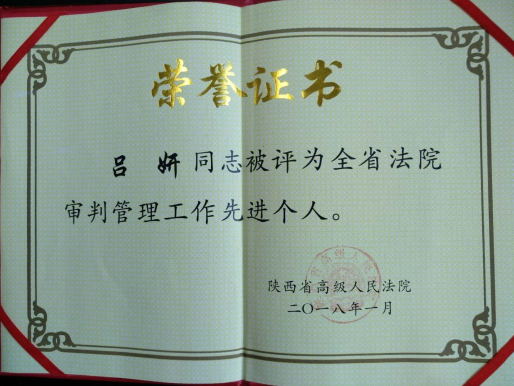 荣誉证书
吕妍同志被评为全省法院
审判管理工作先进个人。
陕西省高级人民法院
二〇一八年一月